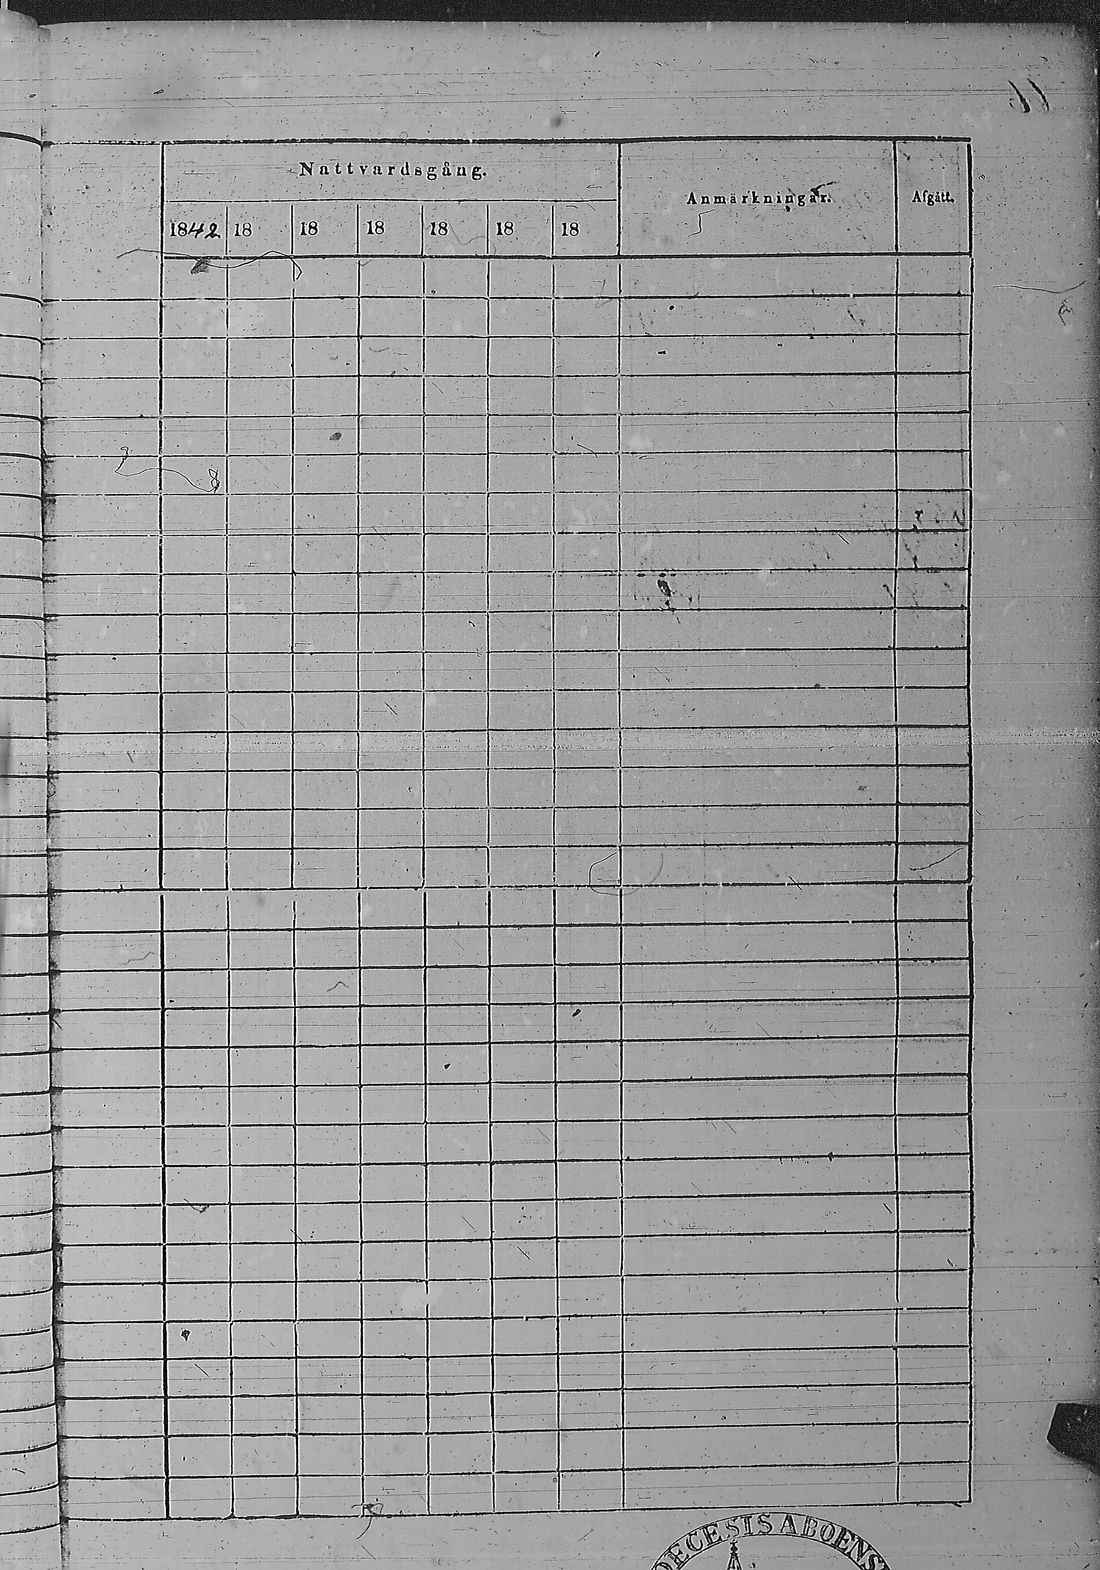 Nattvardsgång.
Anmärkningar.
Afgått.
1842 18 18 18 18 18 18
DECESIS ABOENS